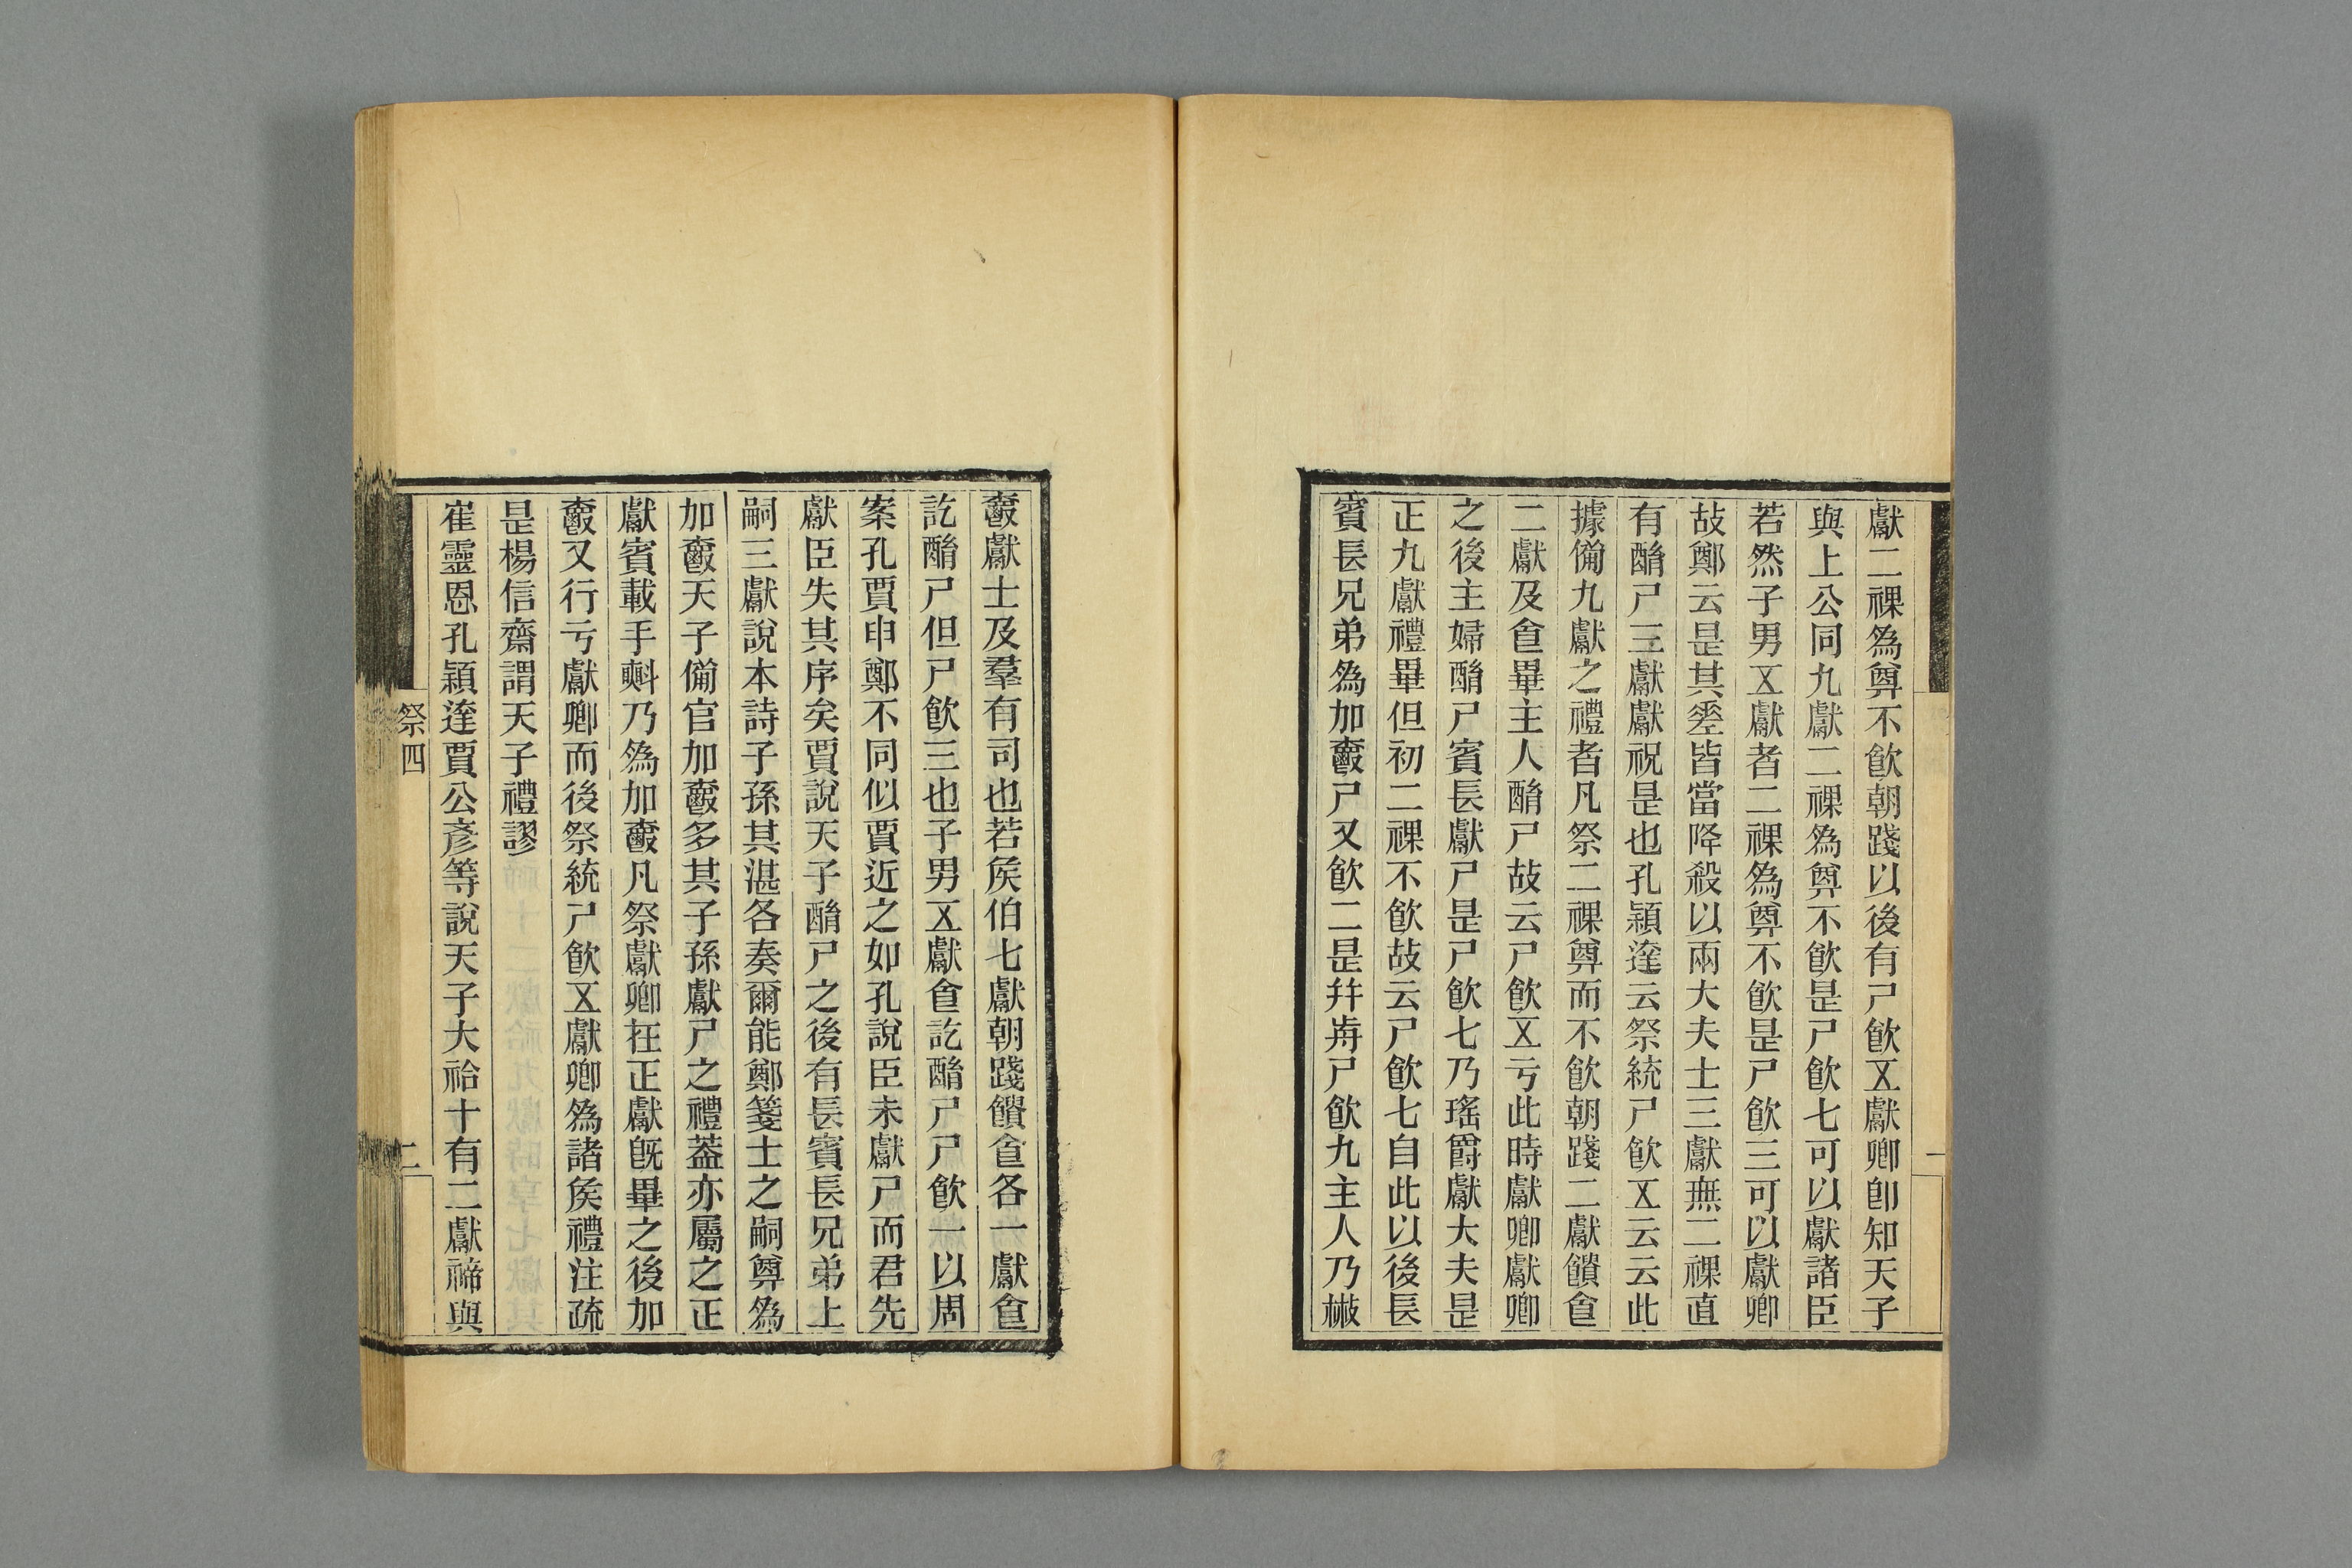 獻二祼爲尊不飮朝踐以後有尸飮五獻卿卽知天子
與上公同九獻二祼爲尊不飮是尸飮七可以獻諸臣
若然子男五獻者二祼爲尊不飮是尸飮三可以獻卿
故鄭云是其差皆當降殺以兩大夫士三獻無二祼直
有酳尸三獻獻祝是也孔穎達云祭統尸飮五云云此
據僃九獻之禮者凡祭二祼尊而不飮朝踐二獻饋食
二獻及食畢主人酳尸故云尸飮五亏此時獻卿獻卿
之後主婦酳尸賓長獻尸是尸飮七乃瑤爵獻大夫是
正九獻禮畢但初二祼不飮故云尸飮七自此以後長
賓長兄弟爲加爵尸又飮二是幷前尸飮九主人乃散
爵獻士及羣有司也若矦伯七獻朝踐饋食各一獻食
訖酳尸但尸飮三也子男五獻食訖酳尸尸飮一以周
案孔賈申鄭不同似賈近之如孔說臣未獻尸而君先
獻臣失其序矣賈說天子酳尸之後有長賓長兄弟上
嗣三獻說本詩子孫其湛各奏爾能鄭箋士之嗣尊爲
加爵天子僃官加爵多其子孫獻尸之禮葢亦屬之正
獻賓載手㪺乃爲加爵凡祭獻卿在正獻旣畢之後加
爵又行亏獻卿而後祭統尸飮五獻卿爲諸矦禮注疏
是楊信齋謂天子禮謬
崔靈恩孔穎達賈公彥等說天子大祫十有二獻禘與
祭四
二
一